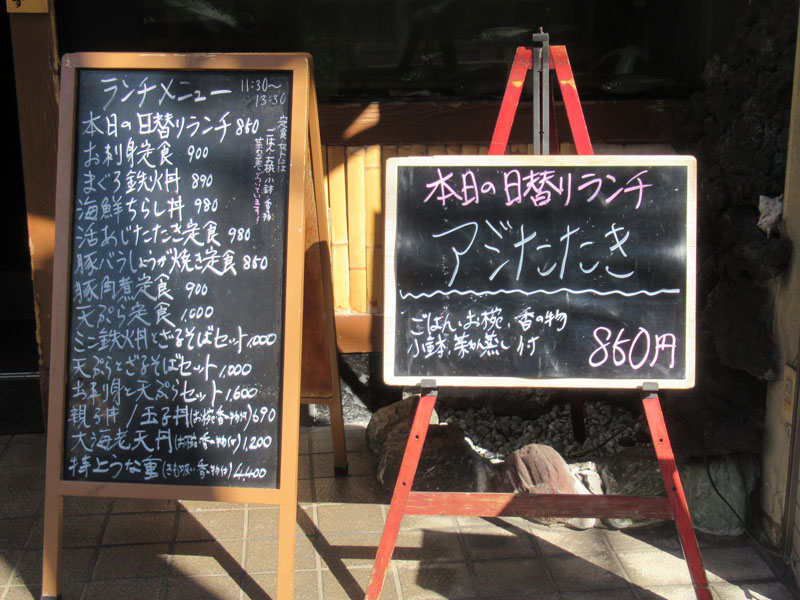 ランチメニュー 11:30〜13:30
本日の日替りランチ 850
お刺身定食 900
まぐろ鉄火丼 890
海鮮ちらし丼 980
活あじたたき定食 980
豚バラしょうが焼き定食 850
豚角煮定食 900
天ぷら定食 1,000
ミニ鉄火丼とざるそばセット 1,000
天ぷらとざるそばセット 1,000
お刺身と天ぷらセット 1,600
親子丼/玉子丼(お椀香の物付) 690
大海老天丼(お椀・香の物付) 1,200
特上うな重(きも吸い香の物付) 4,400
定食セットには
ごはん・お椀・小鉢・香の物
茶わん蒸しがついています!
本日の日替りランチ
アジたたき
ごはん、お椀、香の物
小鉢、茶わん蒸し付
850円